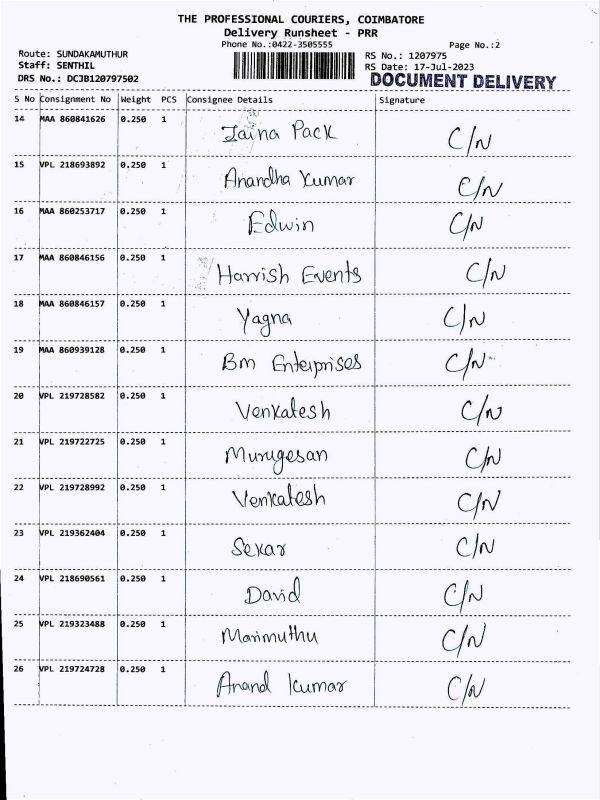 THE PROFESSIONAL COURIERS, COIMBATORE
Delivery Runsheet - PRR
Phone No.:0422-3505555 Page No.:2
Route: SUNDAKAMUTHUR RS No.: 1207975
Staff: SENTHIL RS Date: 17-Jul-2023
DRS No.: DCJB120797502 DOCUMENT DELIVERY
S No Consignment No Weight PCS Consignee Details Signature
14 MAA 860841626 0.250 1 Jaina Pack C/N
15 VPL 218693892 0.250 1 Anandha Kumar C/N
16 MAA 860253717 0.250 1 Edwin C/N
17 MAA 860846156 0.250 1 Harrish Events C/N
18 MAA 860846157 0.250 1 Yagna C/N
19 MAA 860939128 0.250 1 Bm Enterprises C/N
20 VPL 219728582 0.250 1 Venkatesh C/N
21 VPL 219722725 0.250 1 Murugesan C/N
22 VPL 219728992 0.250 1 Venkatesh C/N
23 VPL 219362404 0.250 1 Sekar C/N
24 VPL 218690561 0.250 1 David C/N
25 VPL 219323488 0.250 1 Marimuthu C/N
26 VPL 219724728 0.250 1 Anand Kumar C/N